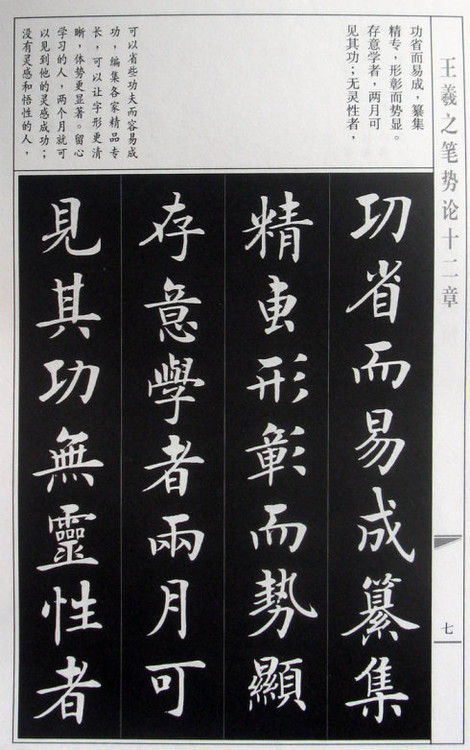 王羲之笔势论十二章
七
功省而易成，纂集
精专，形彰而势显。
存意学者，两月可
见其功；无灵性者，
可以省些功夫而容易成
功，编集各家精品专
长，可以让字形更清
晰，体势更显著。留心
学习的人，两个月就可
以见到他的灵感成功；
没有灵感和悟性的人，
功省而易成纂集
精専形彰而勢顯
存意學者兩月可
見其功無靈性者